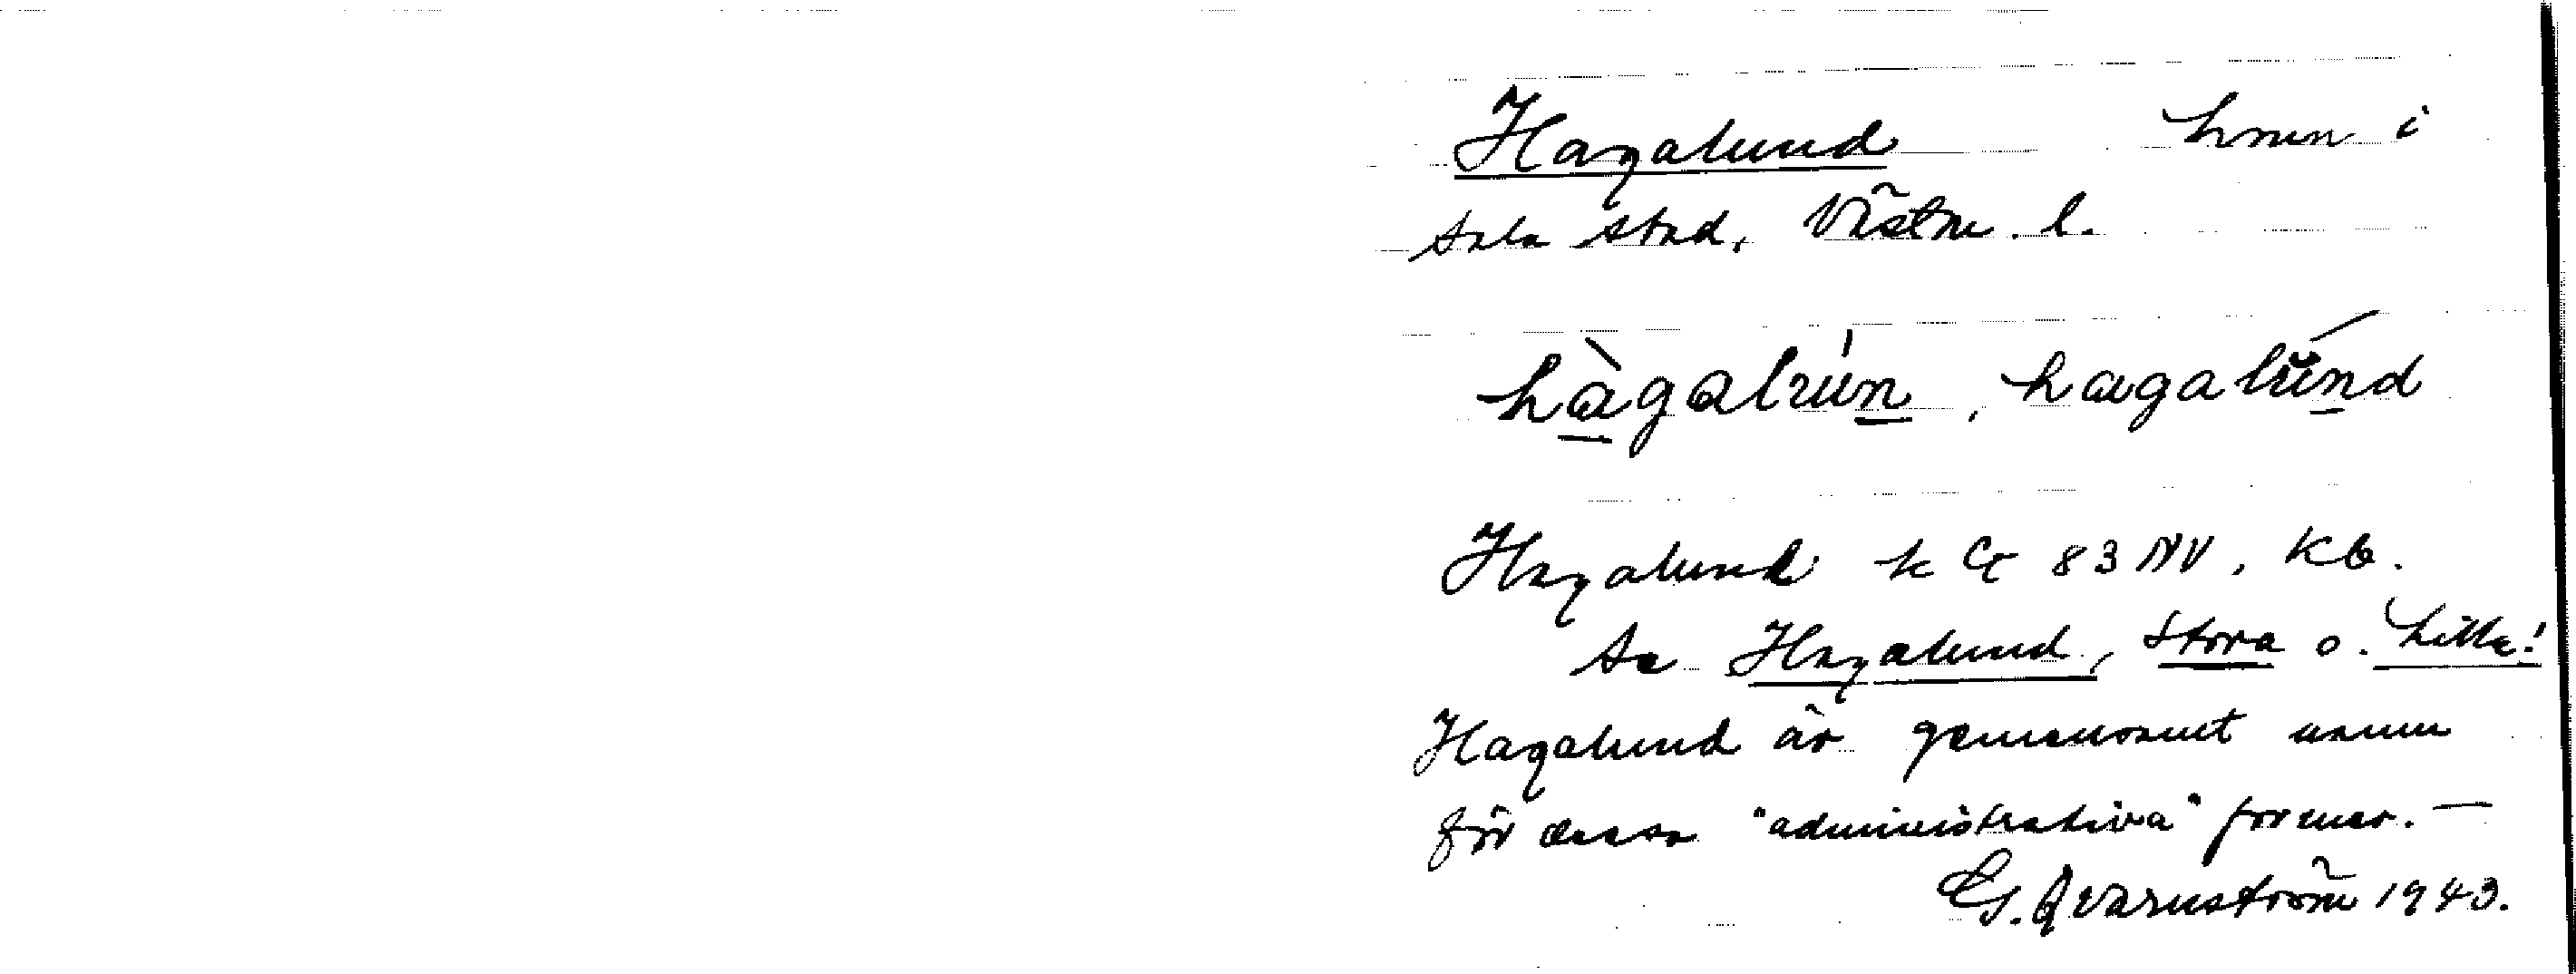 Hagalund hmn i
Sala stad, Västm. l.
hàgalun, hagalúnd
Hagalund k G 83 NV, Kb.
Se Hagalund, Stora o. Lilla!
Hagalund är gemensamt namn
för dessa "administrativa" former. —
G. Qvarnström 1943.